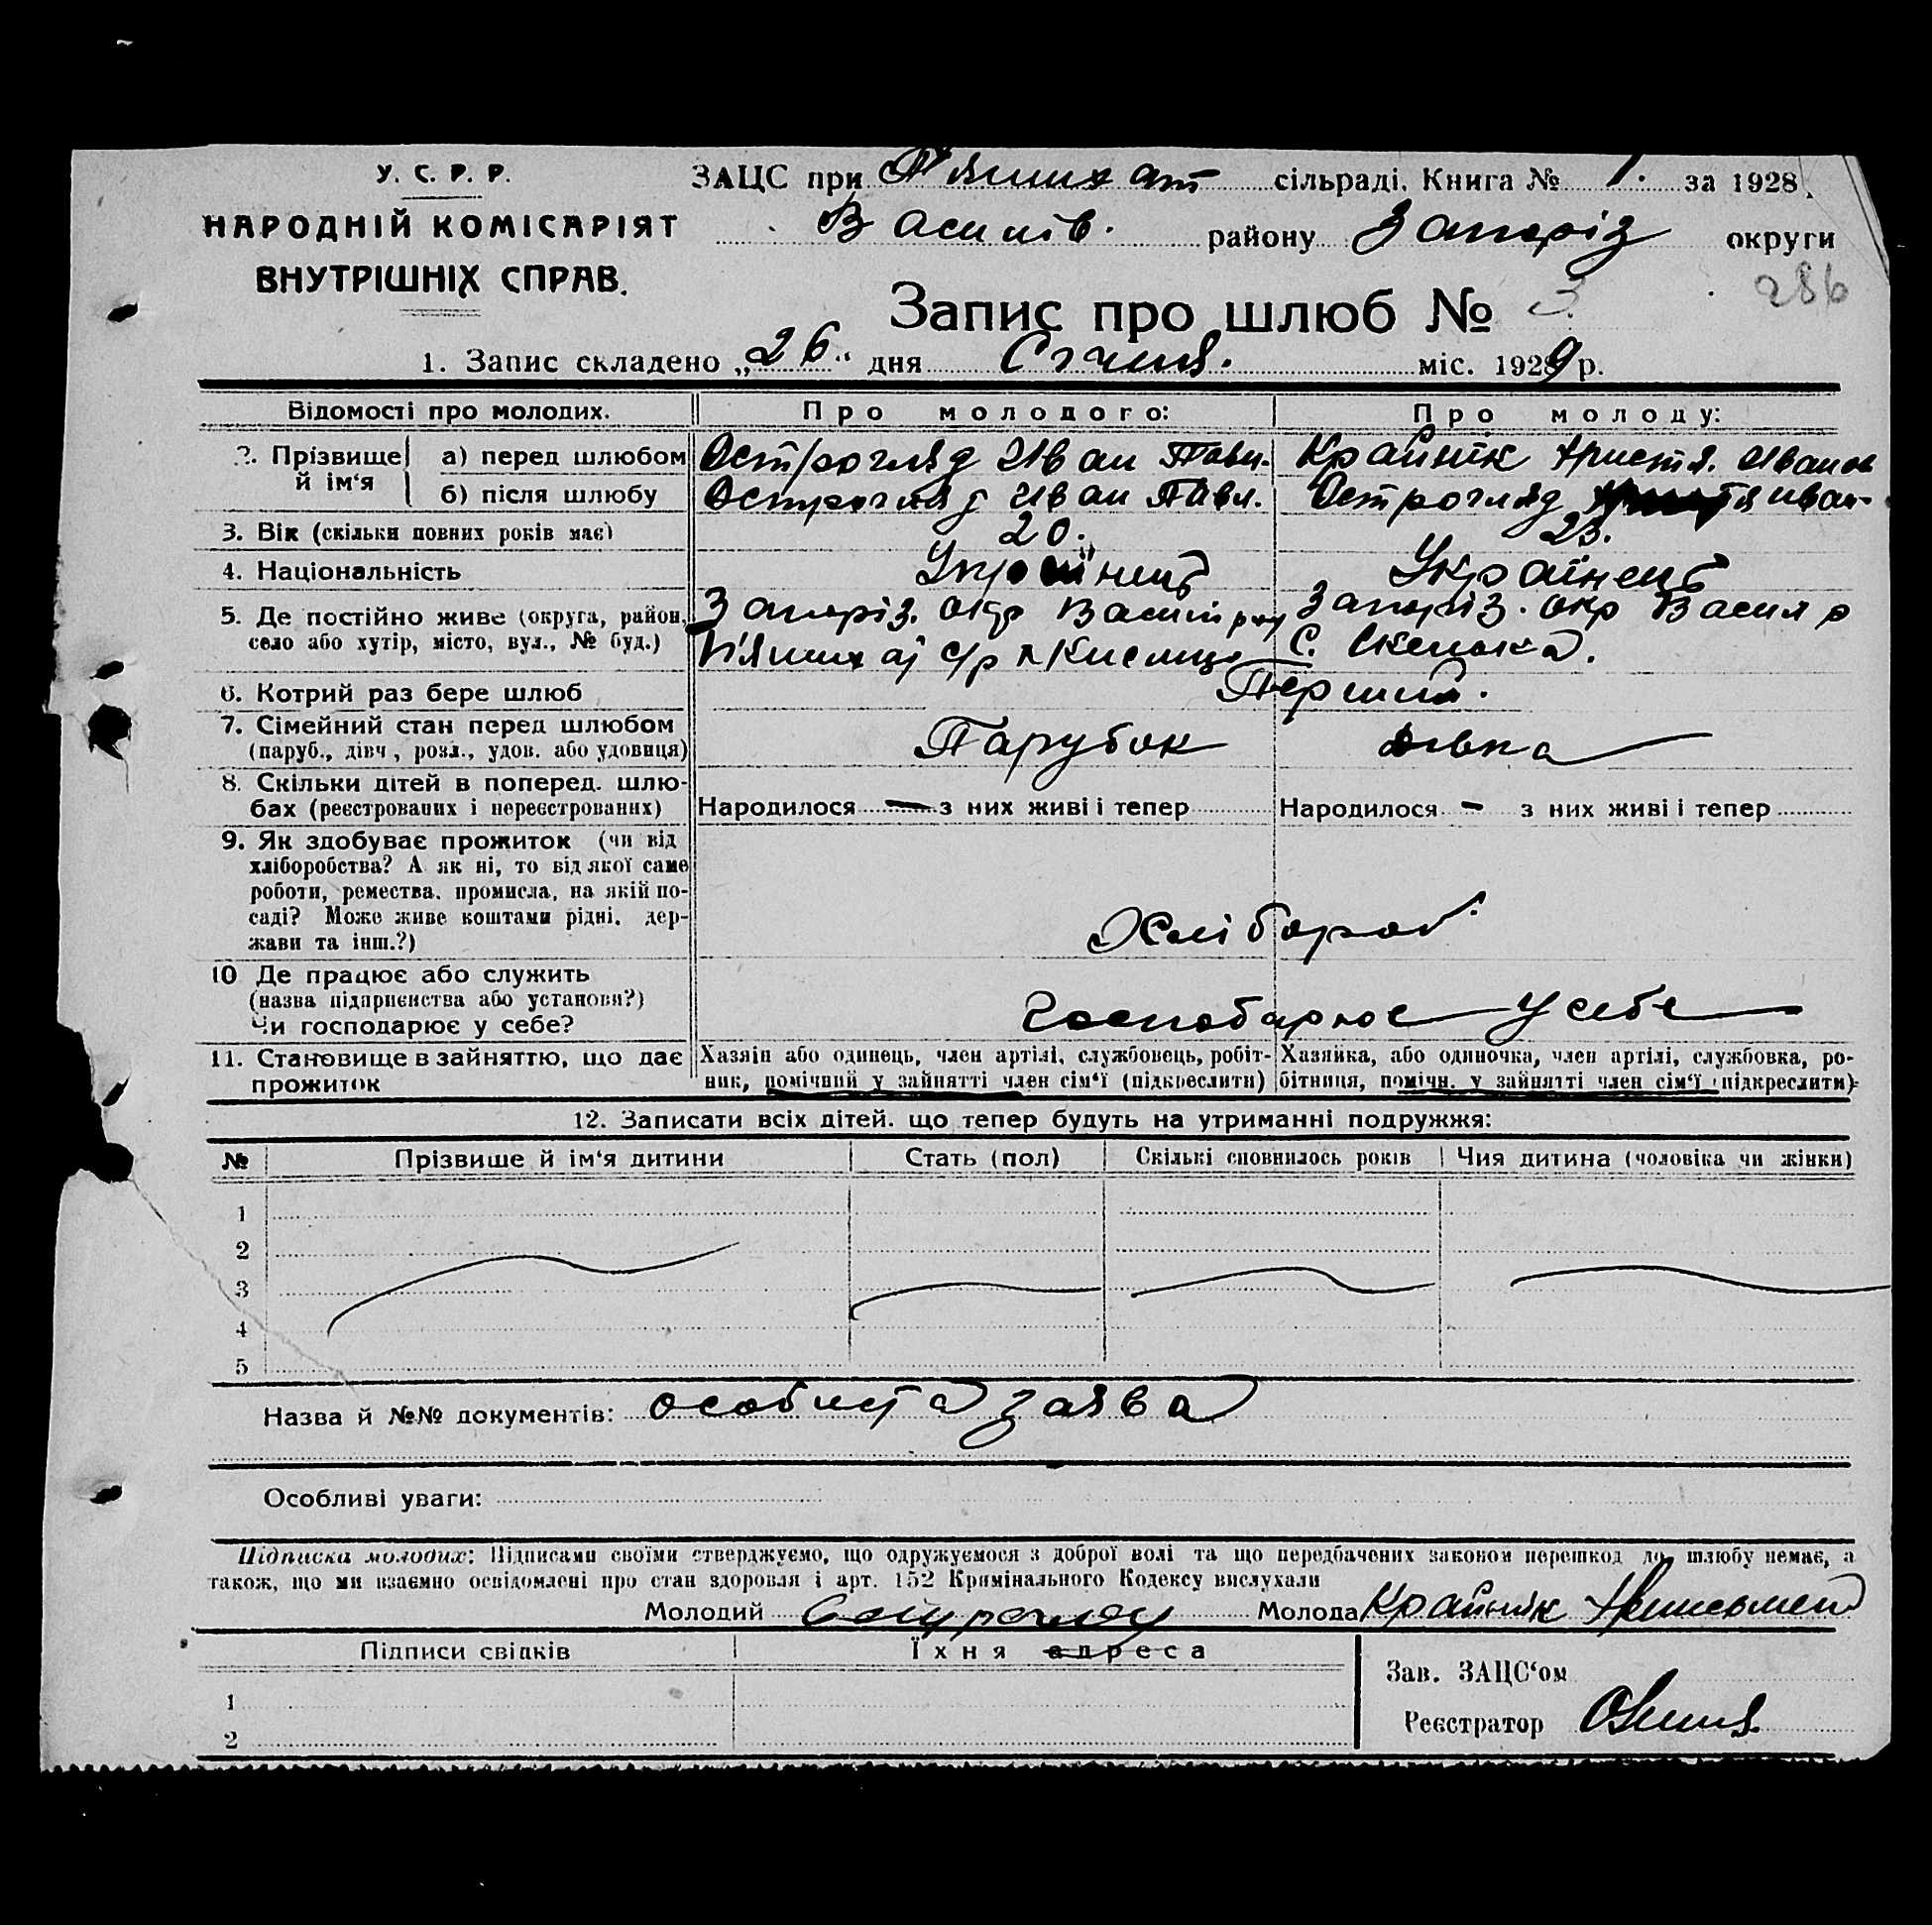 У. С. Р. Р.
НАРОДНІЙ КОМІСАРІЯТ
ВНУТРІШНІХ СПРАВ.
ЗАЦС при П'яшихат сільраді. Книга № 1. за 1928
Василів. району Запоріз округи
286
Запис про шлюб № 3
1. Запис складено „26“ дня Січня. міс. 1929 р.
Відомості про молодих. Про молодого: Про молоду:
2. Прізвище й ім‘я
а) перед шлюбом Острогляд Иван Павл. Крайнік Христя. Иванов
б) після шлюбу Острогляд Иван Павл. Острогляд Иван-
3. Вік (скільки повних років має) 20. 23.
4. Національність Українець Українець
5. Де постійно живе (округа, район, село або хутір, місто, вул., № буд.)
Запоріз. окр Васил рну Запоріз. окр Васил р
П'яшихат с/р С. Скелька.
6. Котрий раз бере шлюб Перший.
7. Сімейний стан перед шлюбом Парубок дівка
(паруб., дівч., розл., удов. або удовиця)
8. Скільки дітей в поперед. шлю-
бах (реєстрованих і нереєстрованих) Народилося — з них живі і тепер Народилося - з них живі і тепер
9. Як здобуває прожиток (чи від
хліборобства? А як ні, то від якої саме
роботи, ремества, промисла, на якій по-
саді? Може живе коштами рідні, дер-
жави та інш.?) Хлібороб.
10 Де працює або служить
(назва підприємства або установи?)
Чи господарює у себе? Господарює у себе
11. Становище в зайняттю, що дає
прожиток
Хазяїн або одинець, член артілі, службовець, робіт-
ник, помічний у зайнятті член сім‘ї (підкреслити)
Хазяйка, або одиночка, член артілі, службовка, ро-
бітниця, помічн. у зайнятті член сім‘ї (підкреслити)
12. Записати всіх дітей, що тепер будуть на утриманні подружжя:
№ Прізвище й ім‘я дитини Стать (пол) Скількі сповнилось років Чия дитина (чоловіка чи жінки)
1
2
3
4
5
Назва й №№ документів: особиста заява
Особливі уваги:
Підписка молодих: Підписами своїми стверджуємо, що одружуємося з доброї волі та що передбачених законом перешкод до шлюбу немає, а
також, що ми взаємно освідомлені про стан здоровля і арт. 152 Кримінального Кодексу вислухали
Молодий Молода Крайнік
Підписи свідків Їхня адреса
1
2
Зав. ЗАЦС‘ом
Реєстратор